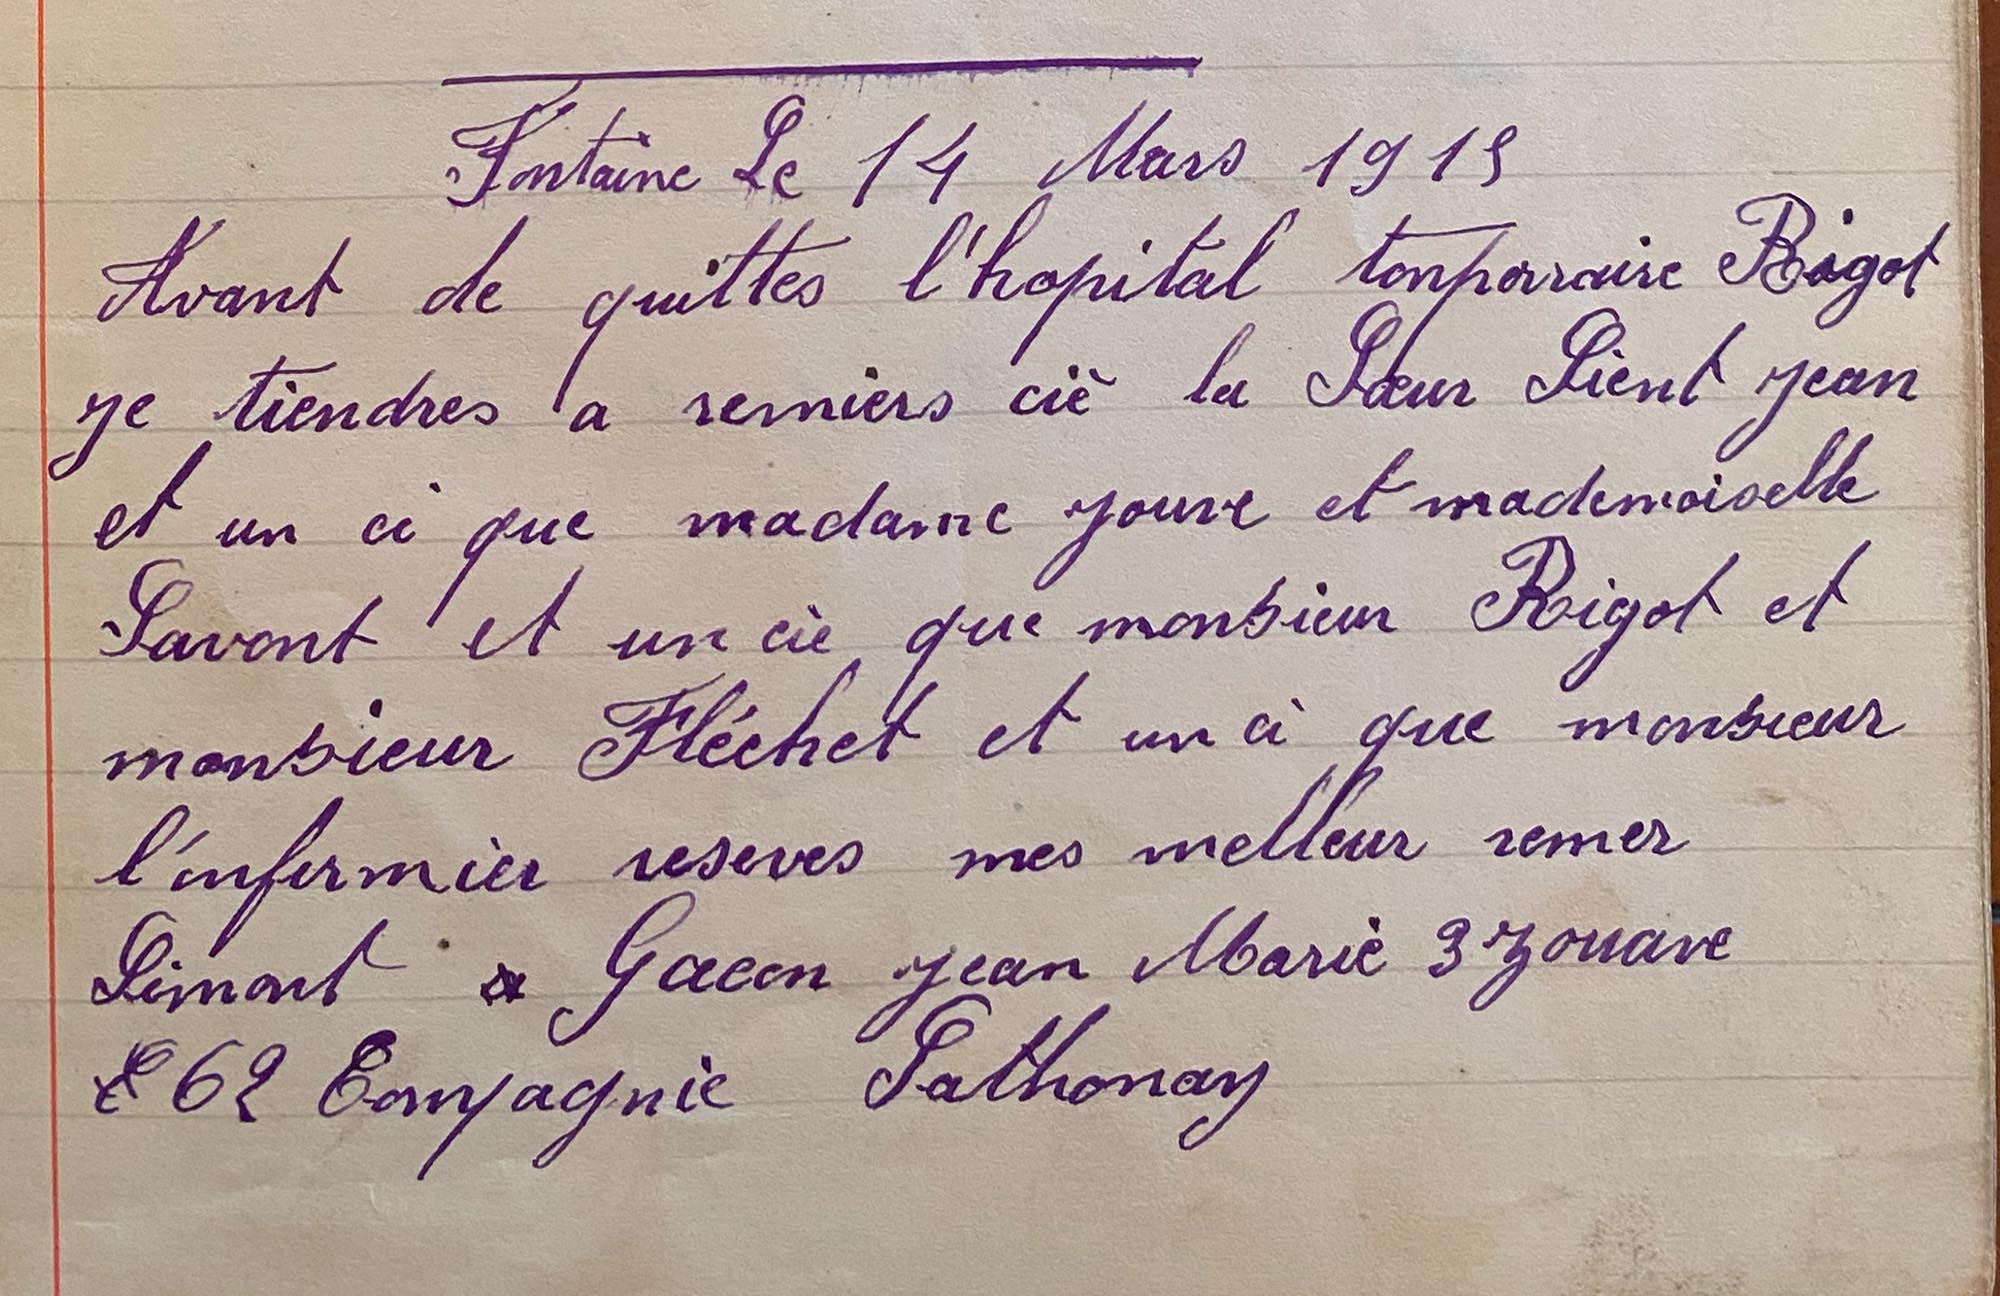 Fontaine Le 14 Mars 1915
Avant de quittes l'hopital tonporraire Rigot
je tiendres a remiers ciè la Sœur Sient jean
et un ci que madame jouve et mademoiselle
Savont et un ciè que monsieur Rigot et
monsieur Fléchet et un ci que monsieur
l'infermier reseves mes melleur remer
Simont Gacon jean Marie 3 zouave
62 Compagnie Sathonay